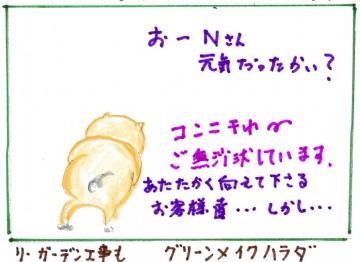 おーNさん
元気だったかい？
コンニチわ〜
ご無沙汰しています。
あたたかく向えて下さる
お客様........しかし...
リ・ガーデン工事も　グリーンメイクハラダ